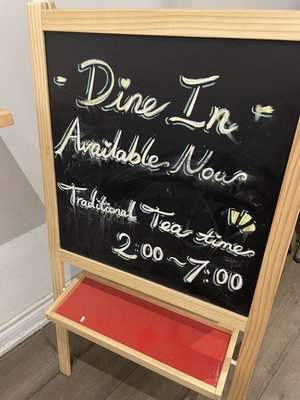 Dine In
Available Now
Traditional Tea time
2:00~7:00